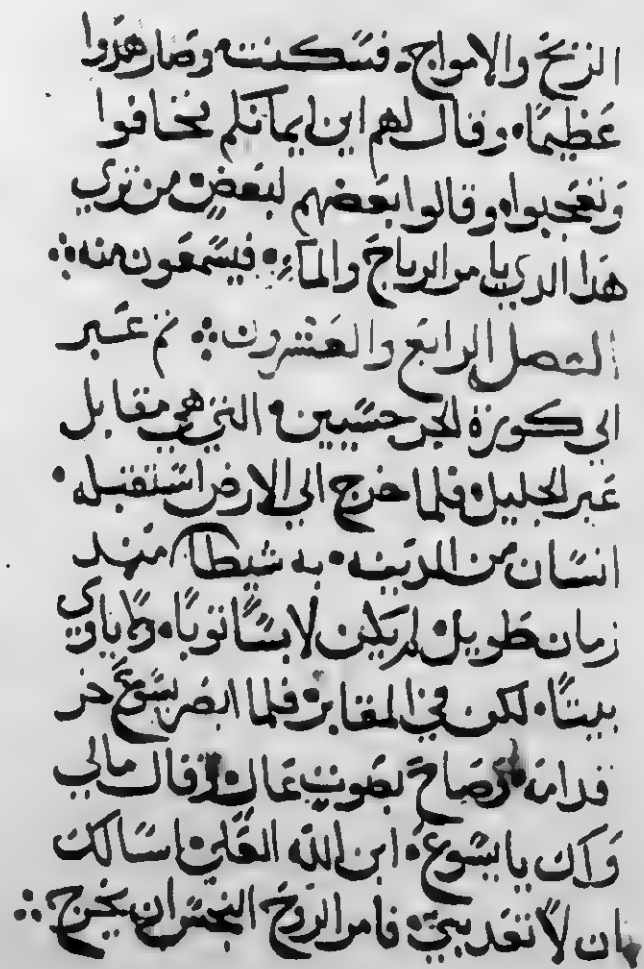 الريح والامواج. فسكنت وصار هدوا
عظيما. وقال لهم اين ايمانكم فخافوا
وتعجبوا وقالوا بعضهم لبعض من تري
هذا الذي يامر الرياح والماء فيسمعون منه
الفصل الرابع والعشرون ثم عبر
الى كورة الجرجسيين. التي هي مقابل
عبر الجليل. فلما خرج الي الارض استقبله
انسان من المدينه. به شيطان منذ
زمان طويل. لم يكن لابسا ثوبا. ولا ياوي
بيتا. لكن في المقابر. فلما ابصر يسوع خر
قدامه وصاح بصوت عال. وقال مالي
ولك يا يسوع. ابن الله العلي. اسالك
ان لا تعذبني. فامر الروح النجس ان يخرج